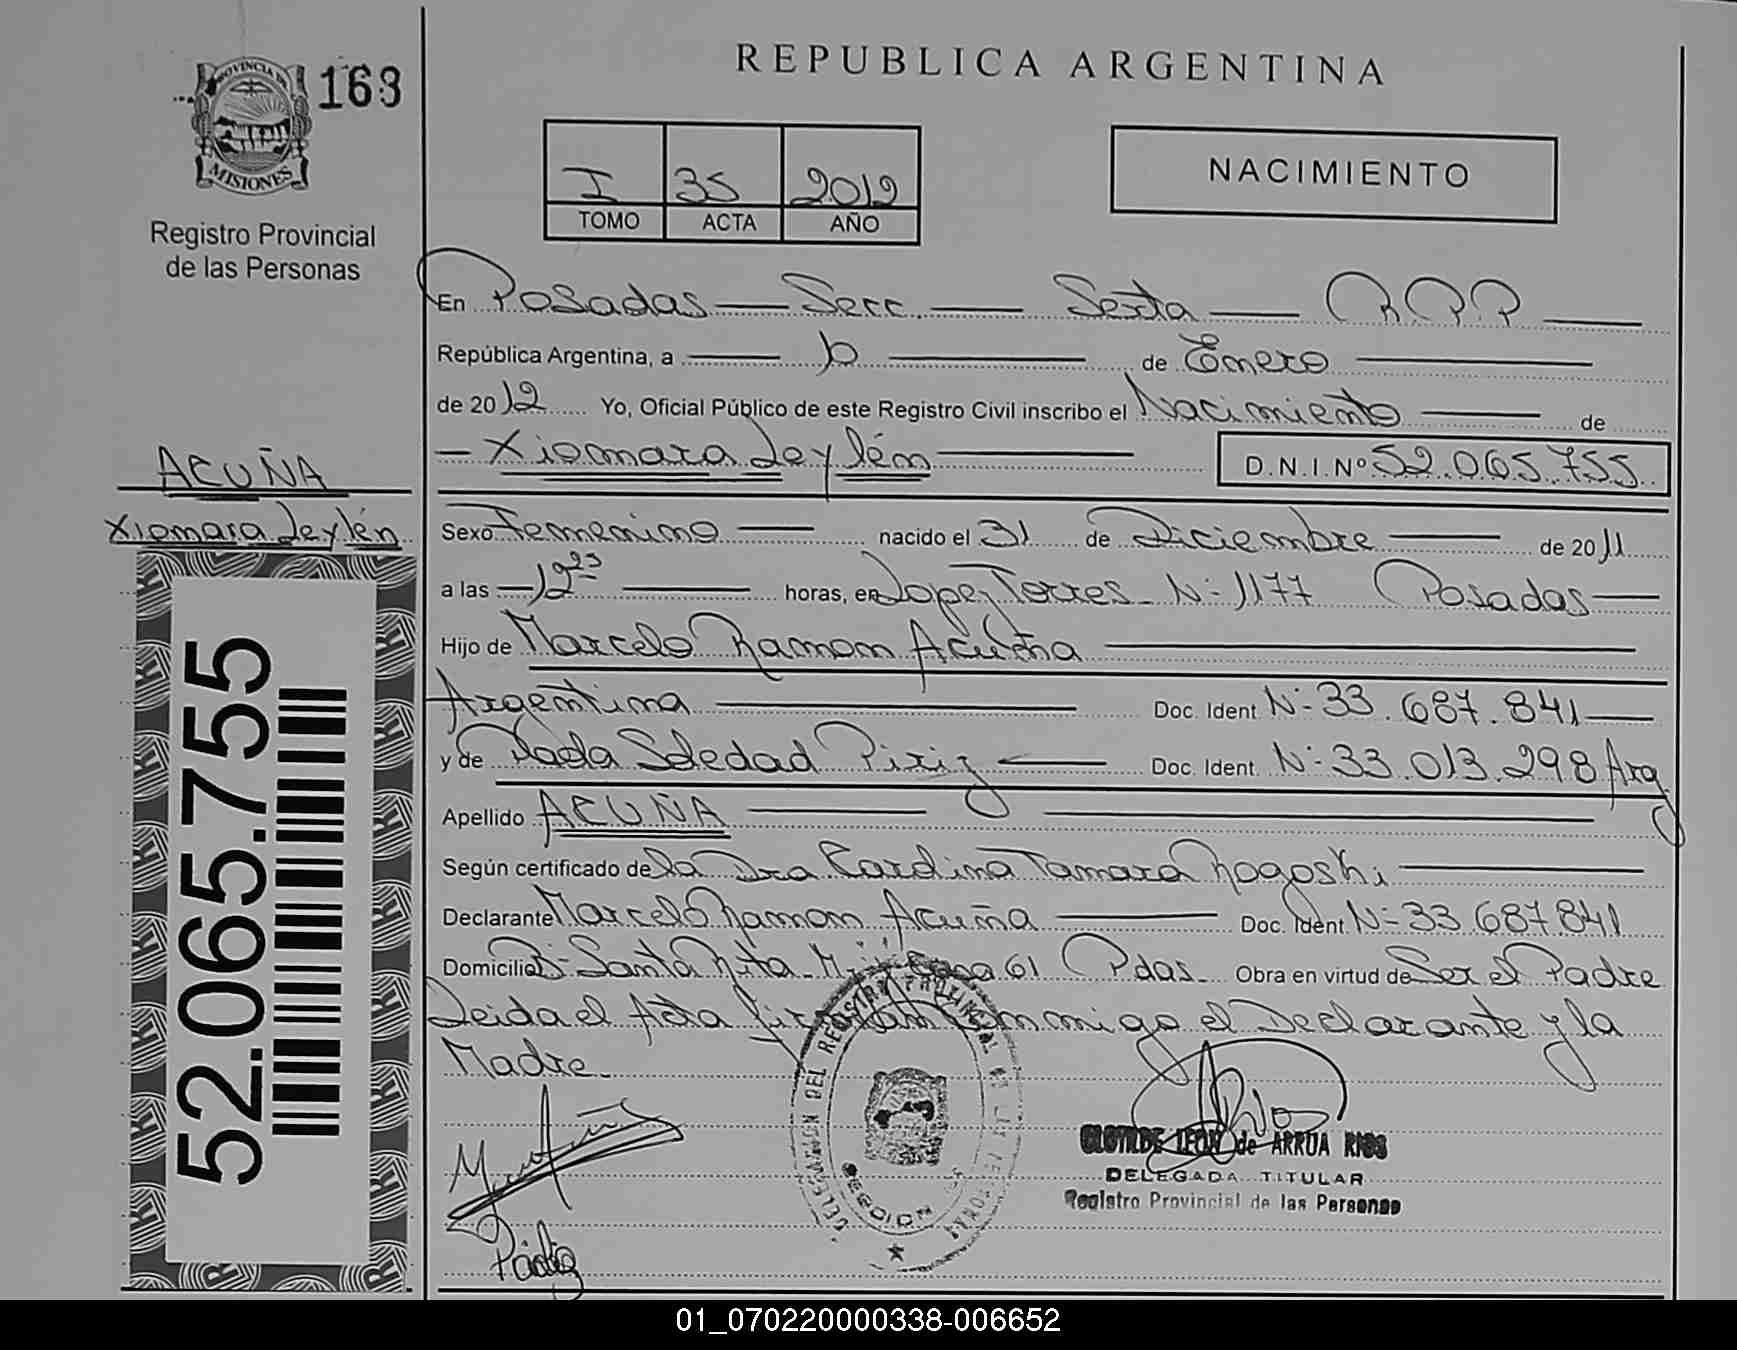 REPUBLICA ARGENTINA
PROVINCIA DE
MISIONES
163
Registro Provincial
de las Personas
I 35 2012
TOMO ACTA AÑO
NACIMIENTO
En Posadas — Secc. — Sexta — R P P —
República Argentina, a — 10 — de Enero —
de 2012 Yo, Oficial Público de este Registro Civil inscribo el Nacimiento — de
— Xiomara Leylén — D.N.I. Nº 52.065.755
ACUÑA
Xiomara Leylén
52.065.755
Sexo Femenino — nacido el 31 de Diciembre — de 2011
a las — 12 23 — horas, en Lopez Torres — Nº 1177 Posadas —
Hijo de Marcelo Ramon Acuña —
Argentina — Doc. Ident. Nº 33.687.841 —
y de Soledad Piriz — Doc. Ident. Nº 33.013.298 Arg
Apellido ACUÑA —
Según certificado de la Dra Carolina Tamara Rogoski —
Declarante Marcelo Ramon Acuña — Doc. Ident. Nº 33.687.841
Domicilio Bº Santa Rita Casa 61 Pdas. Obra en virtud de Ser el Padre
Leida el Acta firman conmigo el Declarante y la
Madre.
DELEGACION DEL REGISTRO PROVINCIAL DE LAS PERSONAS
CLOTILDE LEON de ARRUA RIOS
DELEGADA TITULAR
Registro Provincial de las Personas
01_070220000338-006652